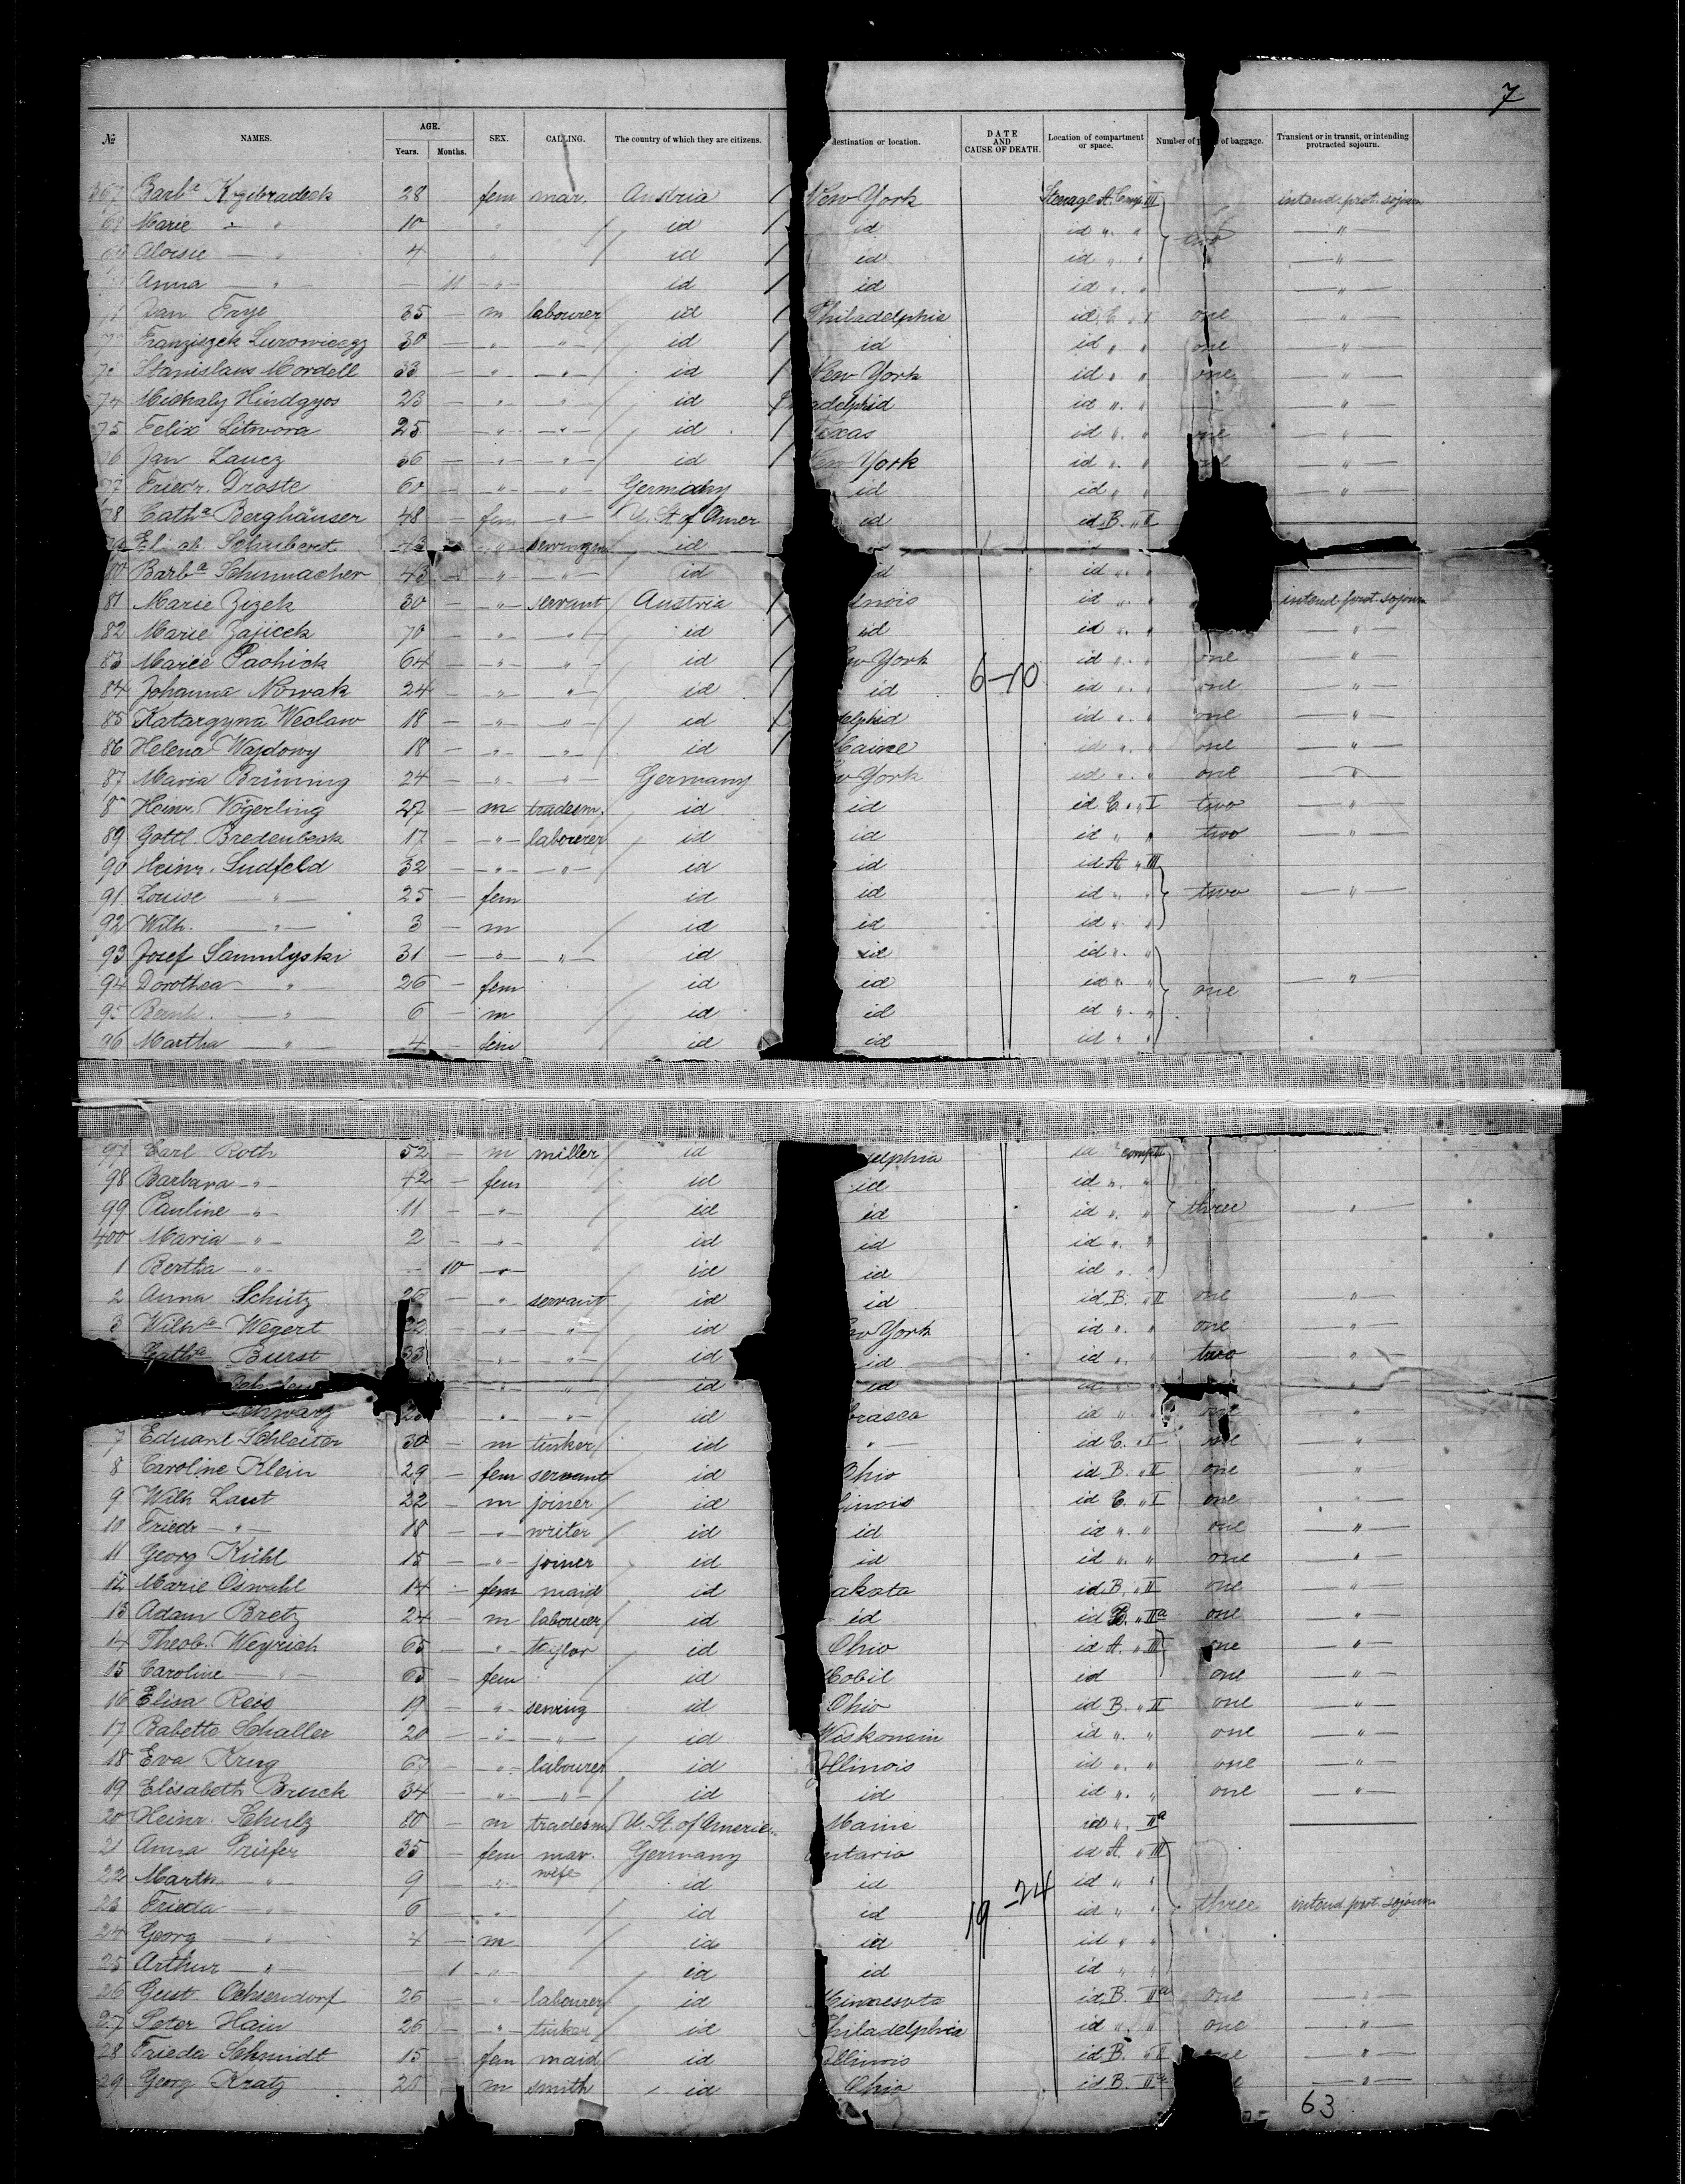 7
№ NAMES. AGE. Years. Months. SEX. CALLING. The country of which they are citizens. destination or location. DATE AND CAUSE OF DEATH. Location of compartment or space. Number of of baggage. Transient or in transit, or intending protracted sojourn.
367 Barbª 28 fem mar. Austria New York Steerage A. Comp. III intend. prot. sojourn
68 Marie " " 10 " id id id " " two "
69 Aloisie " 4 " id id id " " "
Anna " 11 " id id id " " "
Jan Frye 35 m labourer id Philadelphia id C. " I one "
Franziszek 30 " " id id id " " one "
Stanislaus Mordell 33 " " id New York id " " one "
74 Michaly Hindgyos 23 " " id adelphia id " " "
75 Felix Litwora 25 " " id Texas id " " one "
76 Jan Laucz 36 " " id New York id " " "
77 Friedr. Droste 60 " " Germany id id " " "
78 Cathª Berghäuser 48 fem " U. St. of Amer id id B. " II
79 El ab. Schubert 43 " sewing id
80 Barbª Schumacher 43 " " id id id " "
81 Marie Zizek 30 " servant Austria inois id " " intend. prot. sojourn
82 Marie Zajicek 70 " " id id id " " "
83 Marie Pachick 64 " " id ew York id " " one "
84 Johanna Nowak 24 " " id id 6-10 id " " one "
85 Katarzyna Weclaw 18 " " id delphia id " " one "
86 Helena Wajdowy 18 " " id Maine id " " one "
87 Maria Brüning 24 " " Germany w York id " " one "
8 Heinr. Vögerling 27 m tradesm. id id id C. " I two "
89 Gottl. Bredenbeck 17 " labourer id id id " " two "
90 Heinr. Sudfeld 32 " " id id id A " III
91 Louise " 25 fem id id id " " two "
92 Wilh. " 3 m id id id " "
93 Josef Sammlyski 31 " " id id id " "
94 Dorothea " 26 fem id id id " " one "
95 Bernh. " 6 m id id id " "
96 Martha " 4 fem id id id " "
97 Carl Roth 52 m miller id delphia id
98 Barbara " 42 fem id id id " "
99 Pauline " 11 " id id id " " three "
400 Maria " 2 " id id id " "
1 Bertha " 10 " id id id " "
2 Anna Schütz " servant id id id B. " II one "
3 Wilhª Wegert 22 " " id ew York id " " one "
Cathª Burst 33 " " id id id " " two "
" " id id id " " "
Schwarz " " id brasca id " " one "
7 Eduard Schleiter 30 m tinker id " id C. " I one "
8 Caroline Klein 29 fem servant id Ohio id B. " II one "
9 Wilh Laut 22 m joiner id linois id C. " I one "
10 Friedr " 18 " writer id id id " " one "
11 Georg Kühl 15 " joiner id id id " " one "
12 Marie Oswahl 14 fem maid id akota id B. " II one "
13 Adam Bretz 24 m labourer id id id B. " IIª one "
14 Theob. Weyrich 65 " taylor id Ohio id A. " III one "
15 Caroline " 63 fem id Mobil id one "
16 Elisa Reis 19 " sewing id Ohio id B. " II one "
17 Babette Schaller 20 " " id Wiskonsin id " " one "
18 Eva Krug 67 " labourer id Illinois id " " one "
19 Elisabeth Bruck 34 " " id id id " " one "
20 Heinr. Schulz 80 m tradesm U. St. of Americ. Maine id " IIª
21 Anna Prüfer 35 fem mar. wife Germany ntario id A. " III
22 Marth " 9 " id id id " "
23 Frieda " 6 " id id 19-24 id " " three intend. prot. sojourn
24 Georg " 4 m id id id " "
25 Arthur " 1 " id id id " "
26 Gust. Ochsendorf 26 " labourer id Minnesota id B. IIª one "
27 Peter Hain 26 " tinker id Philadelphia id " " one "
28 Frieda Schmidt 15 fem maid id Illinois id B. " II one "
29 Georg Kratz 20 m smith id Ohio id B. IIª "
63